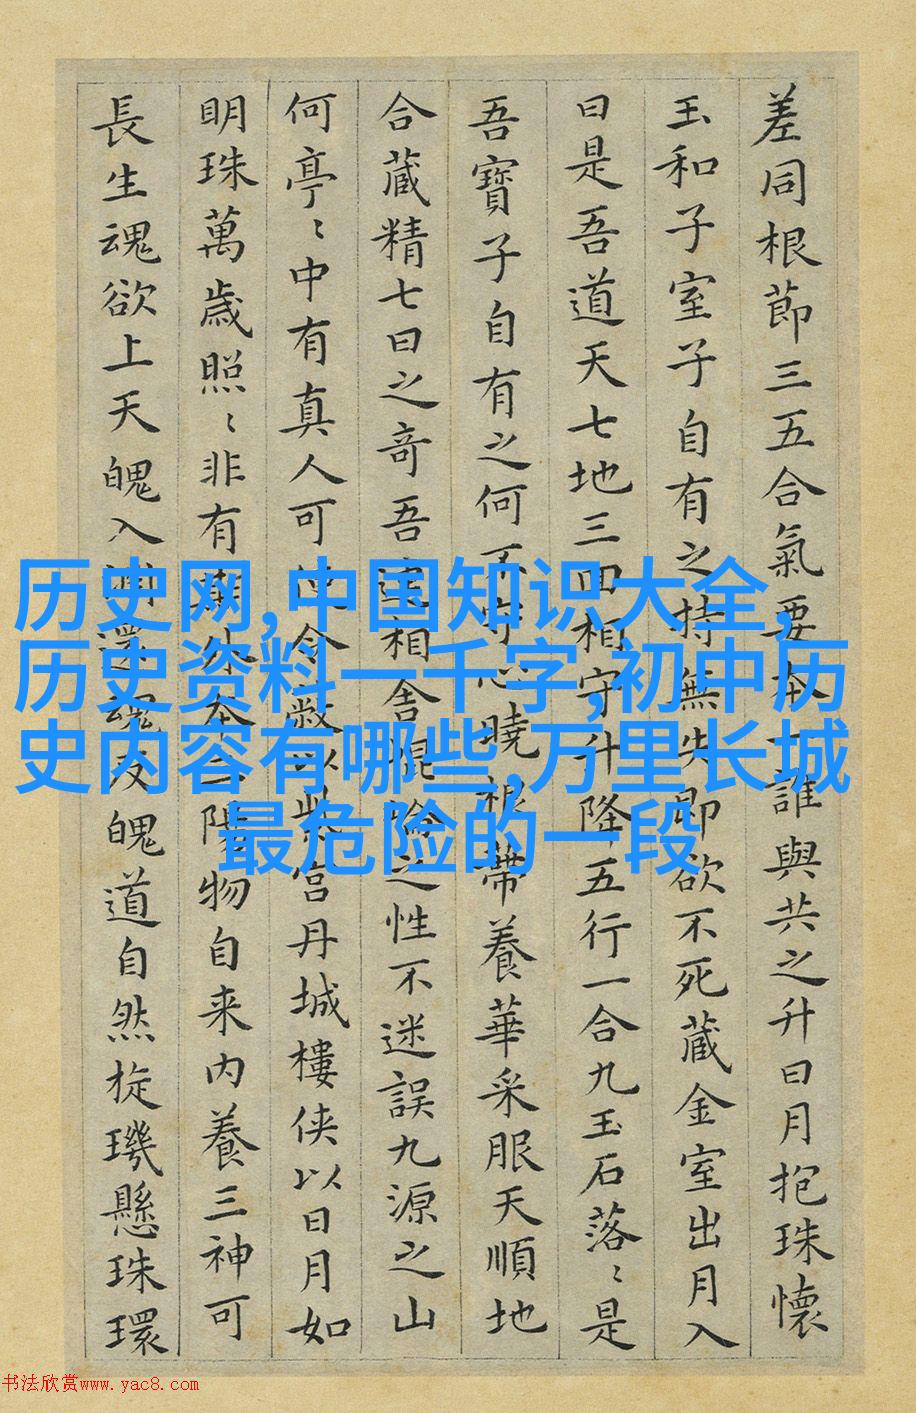 差同根節三五合氣要本一誰與共之升日月抱珠懷
玉和子室子自有之持無失即欲不死藏金室出月入
日是吾道天七地三回相守升降五行一合九玉石落〻是
吾寶子自有之何不守心曉根蔕養華采服天順地
合藏精七日之奇吾連相舍崘之性不迷誤九源之山
何亭〻中有真人可使令蔽以紫宫丹城樓侠以日月如
明珠萬歲照〻非有期外本三陽物自来内養三神可
長生魂欲上天魄入淵還魂反魄道自然旋璣懸珠環
历史网,中国知识大全,
历史资料一千字,初中历
史内容有哪些,万里长城
最危险的一段
书法欣赏www.yac8.com